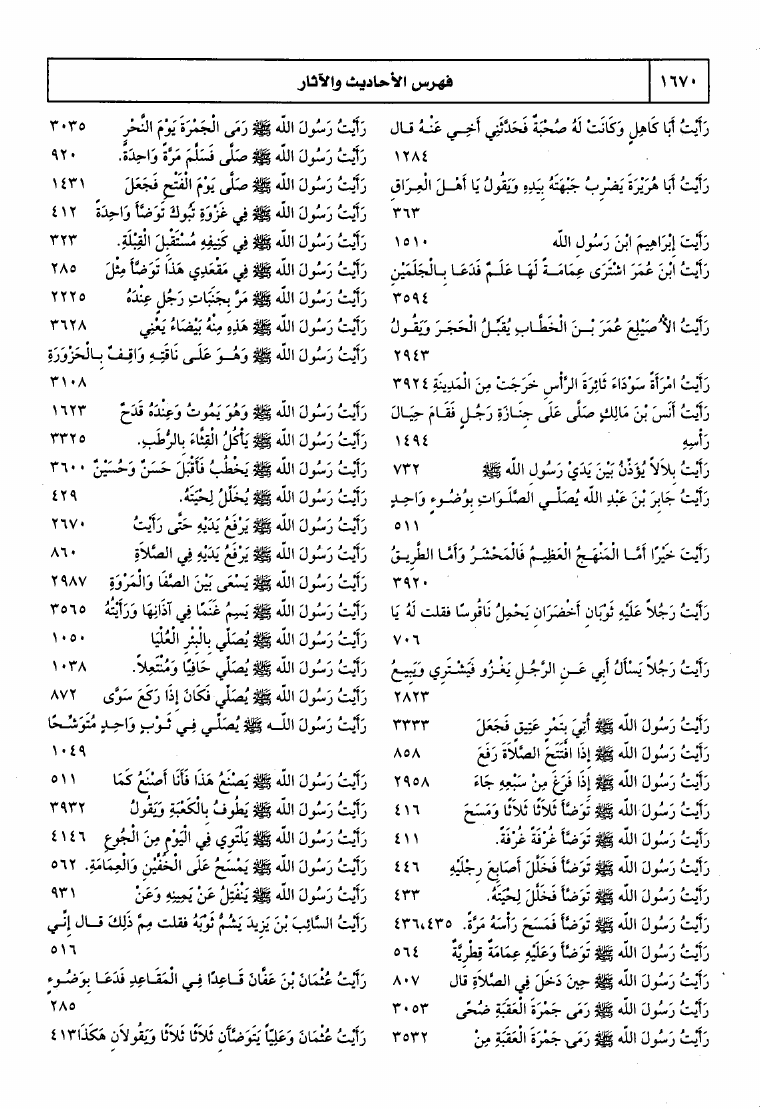 ١٦٧٠
فهرس الأحاديث والآثار
رَأَيْتُ أَبَا كَاهِلٍ وَكَانَتْ لَهُ صُحْبَةٌ فَحَدَّثَنِي أَخِي عَنْهُ قال
١٢٨٤
رَأَيْتُ أَبَا هُرَيْرَةَ يَضْرِبُ جَبْهَتَهُ بِيَدِهِ وَيَقُولُ يَا أَهْلَ الْعِرَاقِ
٣٦٣
رَأَيْتَ إِبْرَاهِيمَ ابْنَ رَسُولِ الله ١٥١٠
رَأَيْتُ ابْنَ عُمَرَ اشْتَرَى عِمَامَةً لَهَا عَلَمٌ فَدَعَا بِالْجَلَمَيْنِ
٣٥٩٤
رَأَيْتُ الأُصَيْلِعَ عُمَرَ بْنَ الْخَطَّابِ يُقَبِّلُ الْحَجَرَ وَيَقُولُ
٢٩٤٣
رَأَيْتُ امْرَأَةً سَوْدَاءَ ثَائِرَةَ الرَّأْسِ خَرَجَتْ مِنَ الْمَدِينَةِ ٣٩٢٤
رَأَيْتُ أَنَسَ بْنَ مَالِكٍ صَلَّى عَلَى جِنَازَةِ رَجُلٍ فَقَامَ حِيَالَ
رَأْسِهِ ١٤٩٤
رَأَيْتُ بِلاَلاً يُؤَذِّنُ بَيْنَ يَدَيْ رَسُولِ الله ﷺ ٧٣٢
رَأَيْتُ جَابِرَ بْنَ عَبْدِ الله يُصَلِّي الصَّلَوَاتِ بِوُضُوءٍ وَاحِدٍ
٥١١
رَأَيْتَ خَيْرًا أَمَّا الْمَنْهَجُ الْعَظِيمُ فَالْمَحْشَرُ وَأَمَّا الطَّرِيقُ
٣٩٢٠
رَأَيْتُ رَجُلاً عَلَيْهِ ثَوْبَانِ أَخْضَرَانِ يَحْمِلُ نَاقُوسًا فقلت لَهُ يَا
٧٠٦
رَأَيْتُ رَجُلاً يَسْأَلُ أَبِي عَنِ الرَّجُلِ يَغْزُو فَيَشْتَرِي وَيَبِيعُ
٢٨٢٣
رَأَيْتُ رَسُولَ الله ﷺ أُتِيَ بِتَمْرٍ عَتِيقٍ فَجَعَلَ ٣٣٣٣
رَأَيْتُ رَسُولَ الله ﷺ إِذَا افْتَتَحَ الصَّلاَةَ رَفَعَ ٨٥٨
رَأَيْتُ رَسُولَ الله ﷺ إِذَا فَرَغَ مِنْ سَبْعِهِ جَاءَ ٢٩٥٨
رَأَيْتُ رَسُولَ الله ﷺ تَوَضَّأَ ثَلاَثًا ثَلاَثًا وَمَسَحَ ٤١٦
رَأَيْتُ رَسُولَ الله ﷺ تَوَضَّأَ غُرْفَةً غُرْفَةً. ٤١١
رَأَيْتُ رَسُولَ الله ﷺ تَوَضَّأَ فَخَلَّلَ أَصَابِعَ رِجْلَيْهِ ٤٤٦
رَأَيْتُ رَسُولَ الله ﷺ تَوَضَّأَ فَخَلَّلَ لِحْيَتَهُ. ٤٣٣
رَأَيْتُ رَسُولَ الله ﷺ تَوَضَّأَ فَمَسَحَ رَأْسَهُ مَرَّةً. ٤٣٦،٤٣٥
رَأَيْتُ رَسُولَ الله ﷺ تَوَضَّأَ وَعَلَيْهِ عِمَامَةٌ قِطْرِيَّةٌ ٥٦٤
رَأَيْتُ رَسُولَ الله ﷺ حِينَ دَخَلَ فِي الصَّلاَةِ قال ٨٠٧
رَأَيْتُ رَسُولَ الله ﷺ رَمَى جَمْرَةَ الْعَقَبَةِ ضُحًى ٣٠٥٣
رَأَيْتُ رَسُولَ الله ﷺ رَمَى جَمْرَةَ الْعَقَبَةِ مِنْ ٣٥٣٢
رَأَيْتُ رَسُولَ الله ﷺ رَمَى الْجَمْرَةَ يَوْمَ النَّحْرِ ٣٠٣٥
رَأَيْتُ رَسُولَ الله ﷺ صَلَّى فَسَلَّمَ مَرَّةً وَاحِدَةً. ٩٢٠
رَأَيْتُ رَسُولَ الله ﷺ صَلَّى يَوْمَ الْفَتْحِ فَجَعَلَ ١٤٣١
رَأَيْتُ رَسُولَ الله ﷺ فِي غَزْوَةِ تَبُوكَ تَوَضَّأَ وَاحِدَةً ٤١٢
رَأَيْتُ رَسُولَ الله ﷺ فِي كَنِيفِهِ مُسْتَقْبِلَ الْقِبْلَةِ. ٣٢٣
رَأَيْتُ رَسُولَ الله ﷺ فِي مَقْعَدِي هَذَا تَوَضَّأَ مِثْلَ ٢٨٥
رَأَيْتُ رَسُولَ الله ﷺ مَرَّ بِجَنَبَاتِ رَجُلٍ عِنْدَهُ ٢٢٢٥
رَأَيْتُ رَسُولَ الله ﷺ هَذِهِ مِنْهُ بَيْضَاءَ يَعْنِي ٣٦٢٨
رَأَيْتُ رَسُولَ الله ﷺ وَهُوَ عَلَى نَاقَتِهِ وَاقِفٌ بِالْحَزْوَرَةِ
٣١٠٨
رَأَيْتُ رَسُولَ الله ﷺ وَهُوَ يَمُوتُ وَعِنْدَهُ قَدَحٌ ١٦٢٣
رَأَيْتُ رَسُولَ الله ﷺ يَأْكُلُ الْقِثَّاءَ بِالرُّطَبِ. ٣٣٢٥
رَأَيْتُ رَسُولَ الله ﷺ يَخْطُبُ فَأَقْبَلَ حَسَنٌ وَحُسَيْنٌ ٣٦٠٠
رَأَيْتُ رَسُولَ الله ﷺ يُخَلِّلُ لِحْيَتَهُ. ٤٢٩
رَأَيْتُ رَسُولَ الله ﷺ يَرْفَعُ يَدَيْهِ حَتَّى رَأَيْتُ ٢٦٧٠
رَأَيْتُ رَسُولَ الله ﷺ يَرْفَعُ يَدَيْهِ فِي الصَّلاَةِ ٨٦٠
رَأَيْتُ رَسُولَ الله ﷺ يَسْعَى بَيْنَ الصَّفَا وَالْمَرْوَةِ ٢٩٨٧
رَأَيْتُ رَسُولَ الله ﷺ يَسِمُ غَنَمًا فِي آذَانِهَا وَرَأَيْتُهُ ٣٥٦٥
رَأَيْتُ رَسُولَ الله ﷺ يُصَلِّي بِالْبِئْرِ الْعُلْيَا ١٠٥٠
رَأَيْتُ رَسُولَ الله ﷺ يُصَلِّي حَافِيًا وَمُنْتَعِلاً. ١٠٣٨
رَأَيْتُ رَسُولَ الله ﷺ يُصَلِّي فَكَانَ إِذَا رَكَعَ سَوَّى ٨٧٢
رَأَيْتُ رَسُولَ الله ﷺ يُصَلِّي فِي ثَوْبٍ وَاحِدٍ مُتَوَشِّحًا
١٠٤٩
رَأَيْتُ رَسُولَ الله ﷺ يَصْنَعُ هَذَا فَأَنَا أَصْنَعُ كَمَا ٥١١
رَأَيْتُ رَسُولَ الله ﷺ يَطُوفُ بِالْكَعْبَةِ وَيَقُولُ ٣٩٣٢
رَأَيْتُ رَسُولَ الله ﷺ يَلْتَوِي فِي الْيَوْمِ مِنَ الْجُوعِ ٤١٤٦
رَأَيْتُ رَسُولَ الله ﷺ يَمْسَحُ عَلَى الْخُفَّيْنِ وَالْعِمَامَةِ. ٥٦٢
رَأَيْتُ رَسُولَ الله ﷺ يَنْفَتِلُ عَنْ يَمِينِهِ وَعَنْ ٩٣١
رَأَيْتُ السَّائِبَ بْنَ يَزِيدَ يَشُمُّ ثَوْبَهُ فقلت مِمَّ ذَلِكَ قال إِنِّي
٥١٦
رَأَيْتُ عُثْمَانَ بْنَ عَفَّانَ قَاعِدًا فِي الْمَقَاعِدِ فَدَعَا بِوَضُوءٍ
٢٨٥
رَأَيْتُ عُثْمَانَ وَعَلِيًّا يَتَوَضَّآنِ ثَلاَثًا ثَلاَثًا وَيَقُولاَنِ هَكَذَا ٤١٣